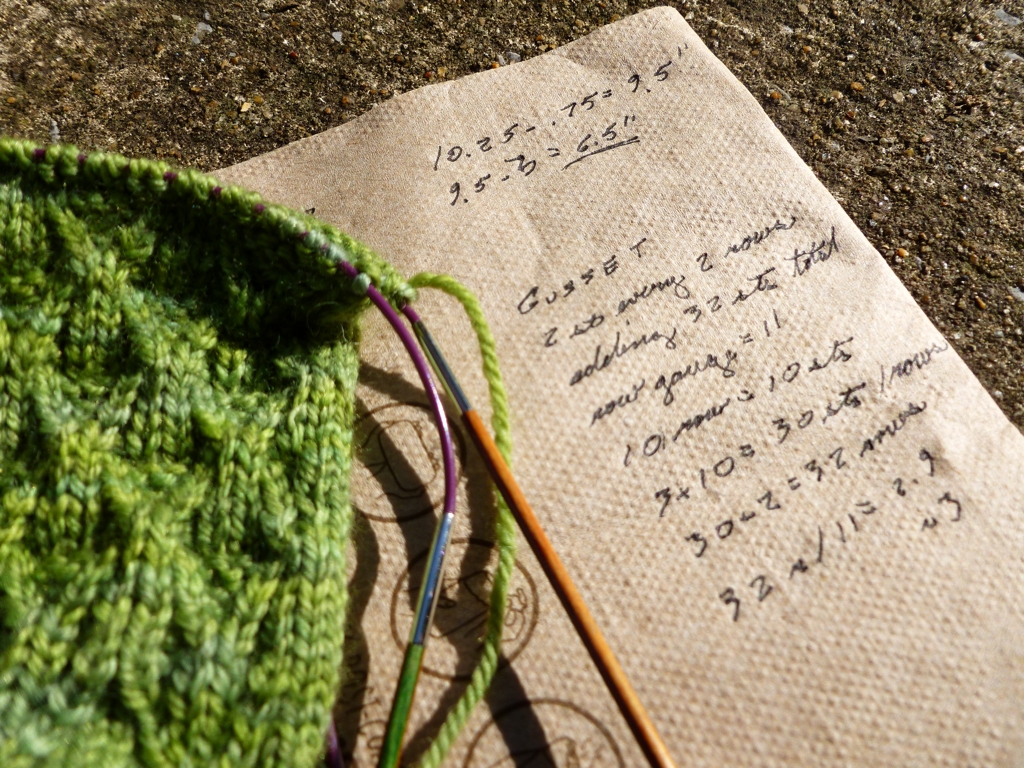 10.25 - .75 = 9.5"
9.5 - 3 = 6.5"
GUSSET
2 sts every 2 rows
adding 32 sts total
row gauge = 11
10 rows = 10 sts
3 x 10 = 30 sts / rows
30 + 2 = 32 rows
32 r / 11 = 2.9
≈ 3